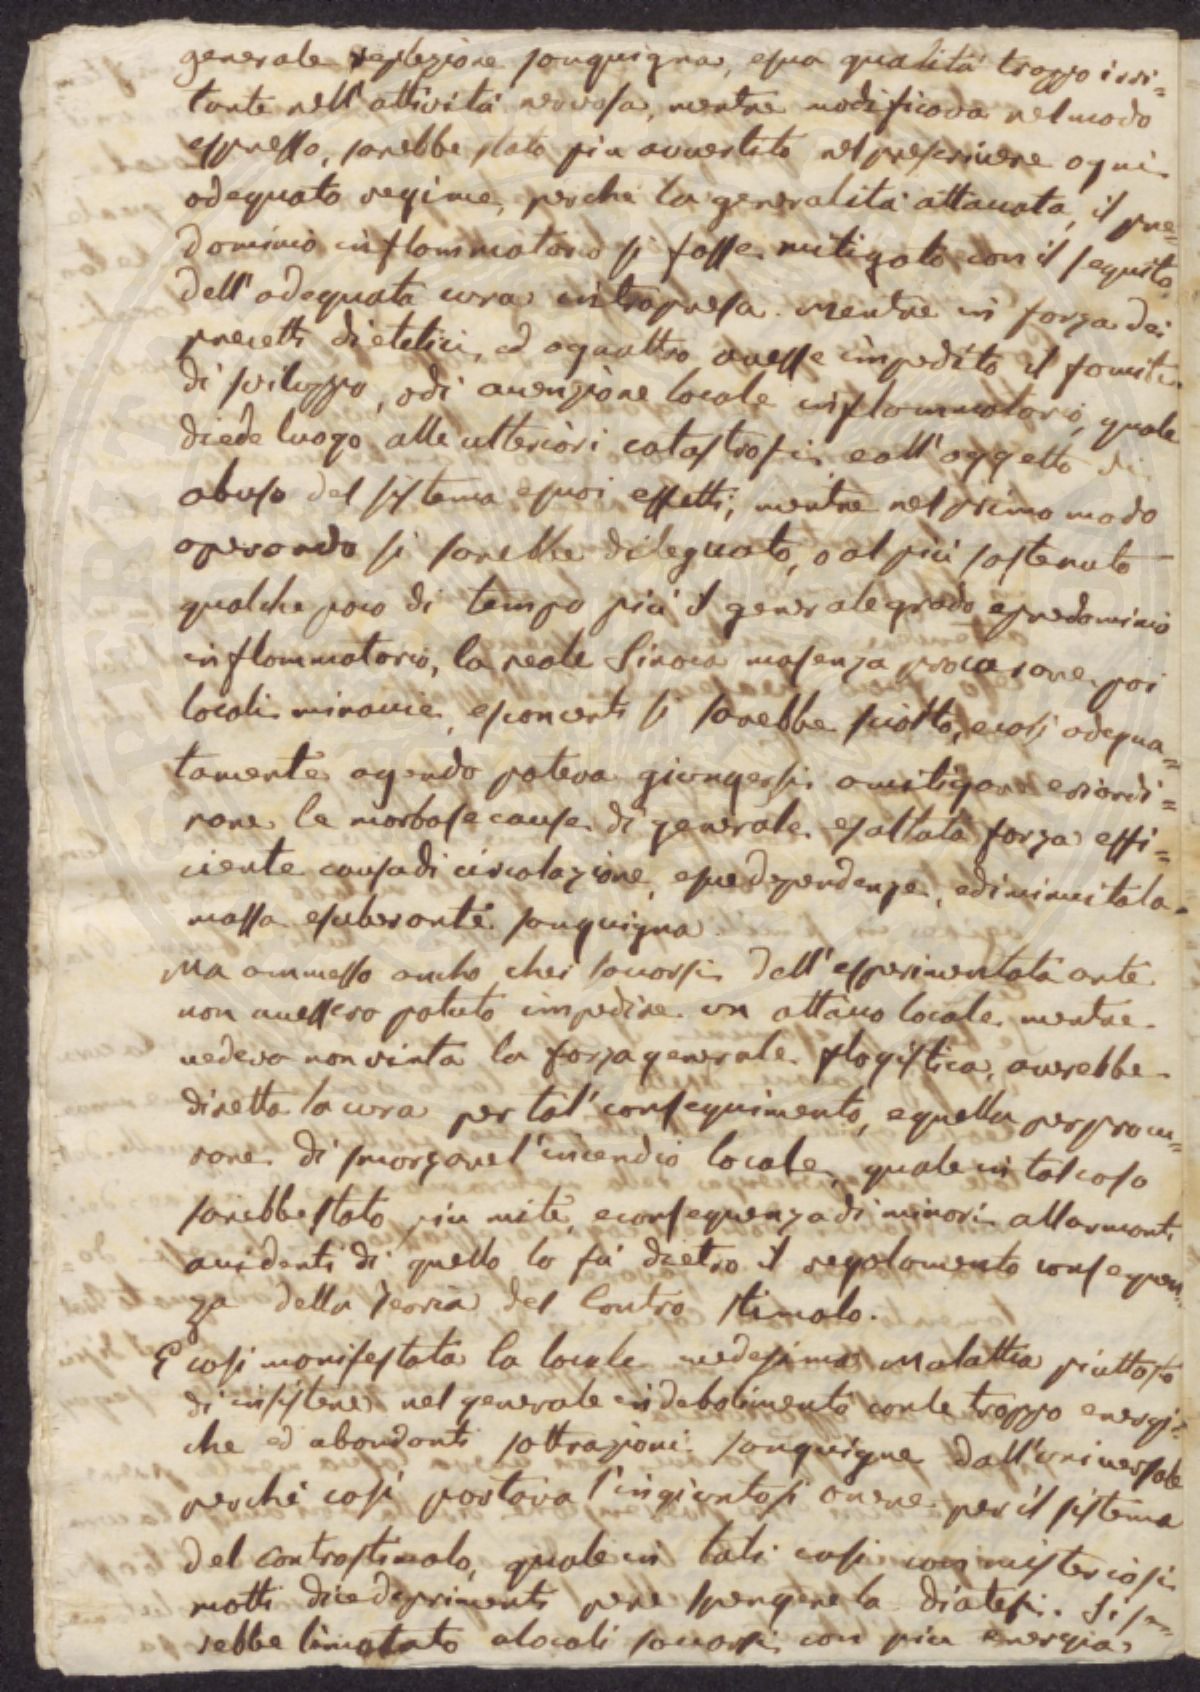 generale replezione sanguigna, esua qualità troppo irri=
tante nell'attività nervosa, mentre modificava nel modo
espresso, sarebbe stato più avvertito nel prescrivere ogni
adequato regime, perchè la generalità attaccata, il pre=
dominio inflammatorio si fosse mitigato con il seguito
dell'adequata cura intrapresa. Mentre in forza dei
precetti dietetici, ed aquattro avesse impedito il fomite
di sviluppo, odi accenzione locale inflammatorio, quale
diede luogo alle ulteriori catastrofi, eall'oggetto di
abuso del sistema esuoi effetti, mentre nel primo modo
operando si sarebbe dileguato, o al più sostenuto
qualche poco di tempo più il generale grado epredominio
inflammatorio, la reale Sinoca masenza procurare poi
locali minaccie, esconcerti si sarebbe sciolto, ecosi adequa=
tamente agendo poteva giongersi amitigare eriordi=
nare le morbose cause di generale esaltata forza effi=
ciente causa di circolazione, esue dipendenze, ediminuita la
massa esuberante sanguigna.
Ma ammesso ancho che i soccorsi dell'esperimentata arte
non avessero potuto impedire un attacco locale mentre
vedeva non vinta la forza generale flogistica, averebbe
diretta la cura per tal' conseguimento, equella per procu=
rare di smorzare l'incendio locale, quale in tal caso
sarebbe stato più mite, econsequenza di minori allarmanti
accidenti di quello lo fù dietro il regolamento consequen=
za della Teoria del Contro stimolo.
E cosi manifestata la locale medesima Malattia piuttosto
di insistere nel generale indebolimento conle troppo energi=
che ed abondanti sottrazioni sanguigne dall'universale
perchè così portava l'ingiuntosi onere per il sistema
del contrastimolo, quale in tali casi con misteriosi
motti dice deprimenti per spengere la diatesi. Si sa=
rebbe limitato alocali soccorsi con più energia